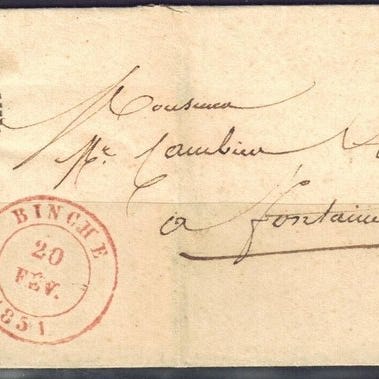 Monsieur
Mr. Cambier
à Fontaine
BINCHE
20
FÉV.
1851